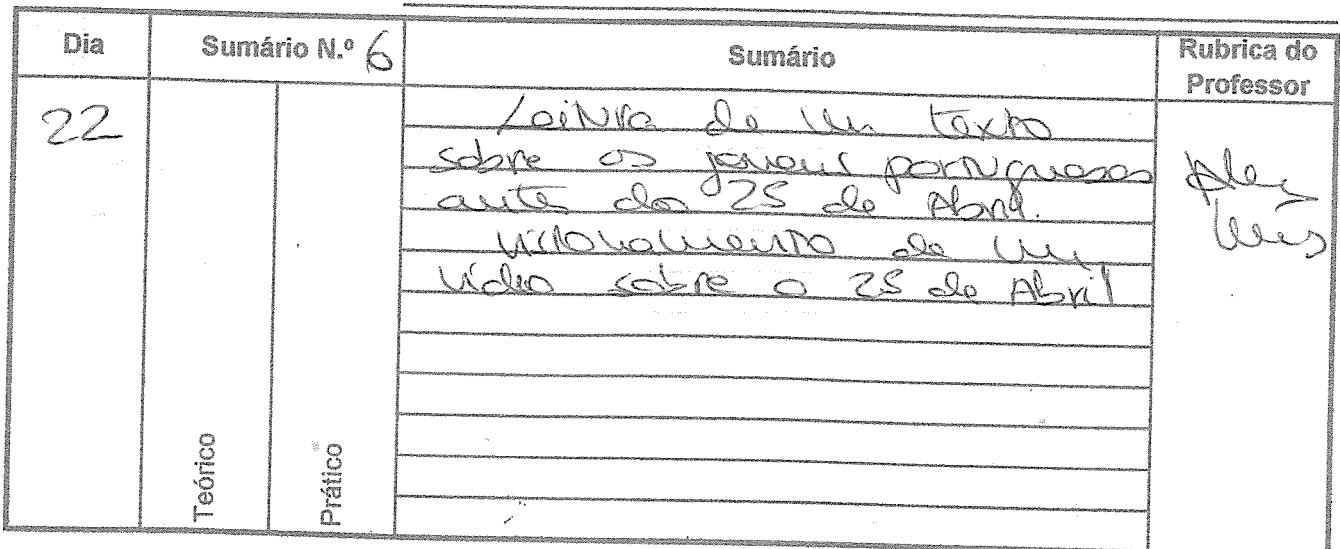 Dia
Sumário N.º 6
Sumário
Rubrica do
Professor
22
Leitura de um texto
sobre os jovens portugueses
antes do 25 de Abril.
Visionamento de um
vídeo sobre o 25 de Abril
Teórico
Prático